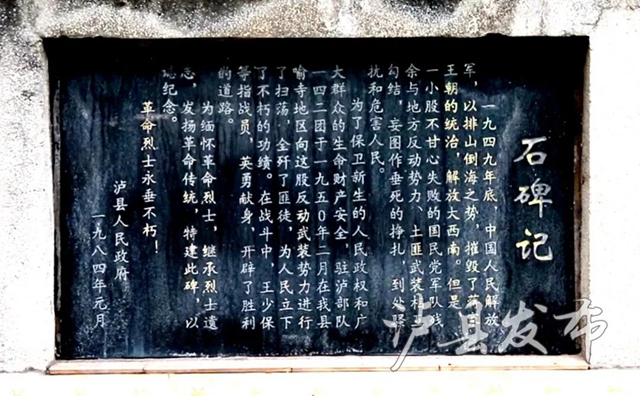 石碑记
一九四九年底，中国人民解放
军，以排山倒海之势，摧毁了蒋
王朝的统治，解放大西南。但是
一小股不甘心失败的国民党军队残
余与地方反动势力、土匪武装相
勾结，妄图作垂死的挣扎，到处骚
扰和危害人民。
为了保卫新生的人民政权和广
大群众的生命财产安全，驻泸部队
一四二团于一九五〇年二月在我县
喻寺地区向这股反动武装势力进行
了扫荡，全歼了匪徒，为人民立下
了不朽的功绩。在战斗中，王少保
等指战员，英勇献身，开辟了胜利
的道路。
为缅怀革命烈士，继承烈士遗
志，发扬革命传统，特建此碑，以
志纪念。
革命烈士永垂不朽！
泸县人民政府
一九八四年元月
泸县发布